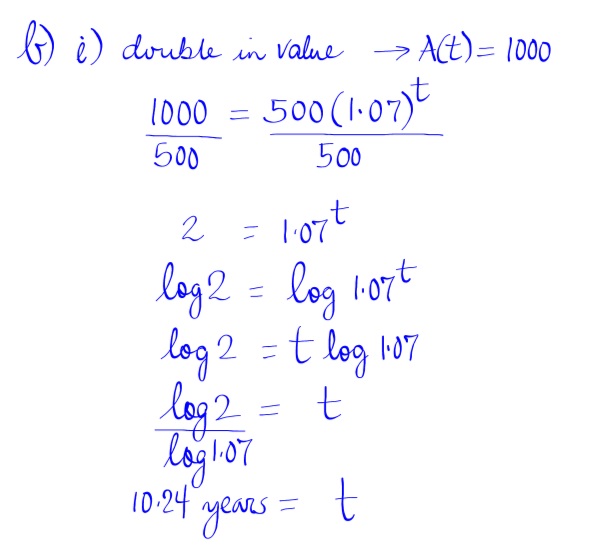 b) i) double in value → A(t) = 1000
1000/500 = 500(1.07)^t/500
2 = 1.07^t
log 2 = log 1.07^t
log 2 = t log 1.07
log 2/log 1.07 = t
10.24 years = t